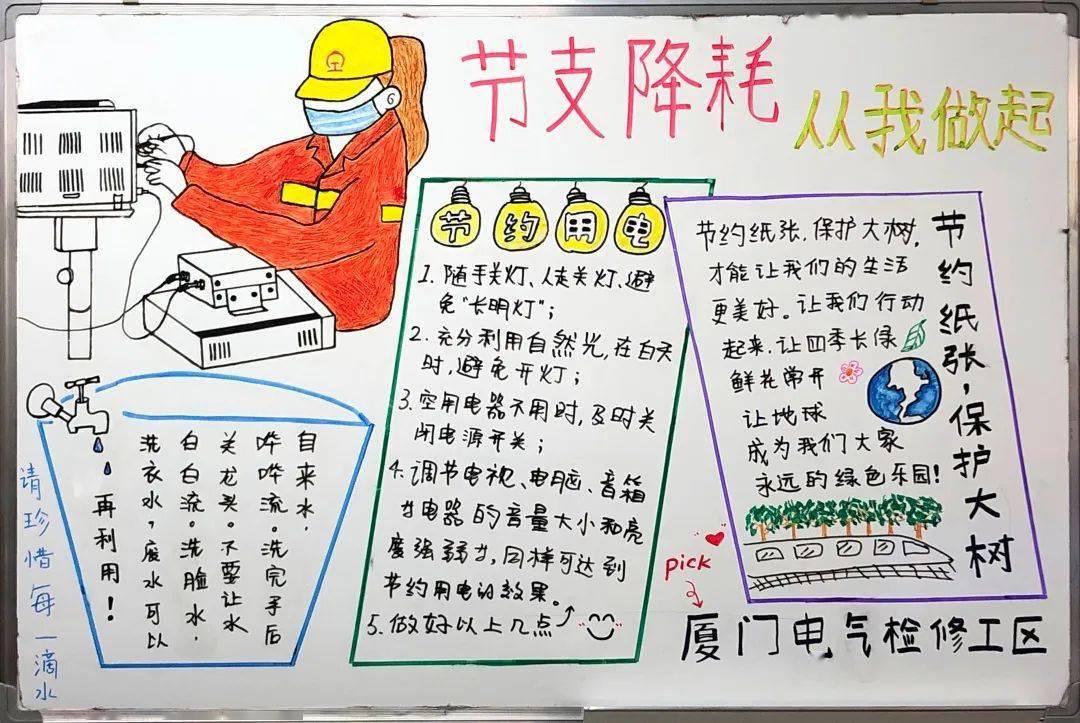 节支降耗
从我做起
节约用电
1. 随手关灯、人走关灯、避
免“长明灯”；
2. 充分利用自然光，在白天
时，避免开灯；
3. 空用电器不用时，及时关
闭电源开关；
4. 调节电视、电脑、音箱
廿电器的音量大小和亮
度强弱廿，同样可达到
节约用电的效果。
5. 做好以上几点
节约纸张，保护大树
节约纸张，保护大树，
才能让我们的生活
更美好。让我们行动
起来，让四季长绿
鲜花常开
让地球
成为我们大家
永远的绿色乐园！
自来水，
哗哗流。洗完手后
关龙头。不要让水
白白流。洗脸水，
洗衣水，废水可以
再利用！
请珍惜每一滴水
pick
厦门电气检修工区